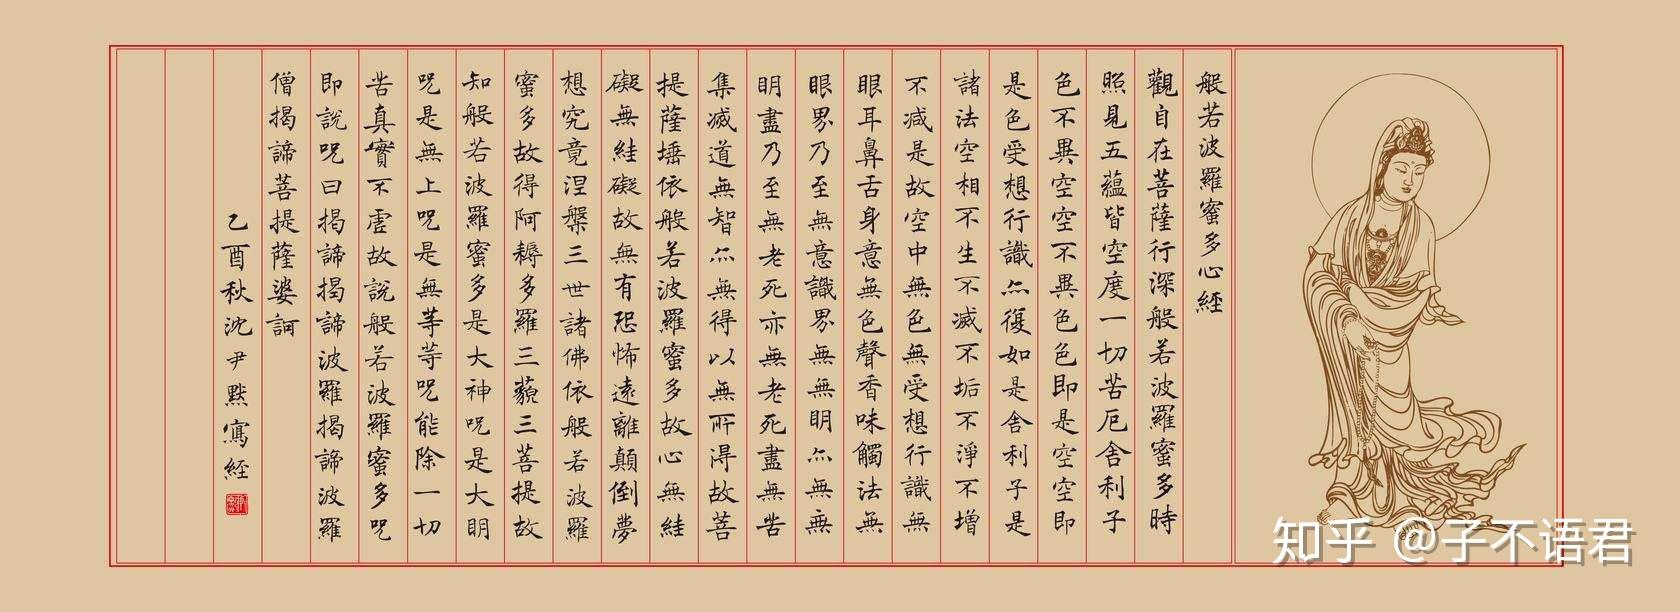 般若波羅蜜多心經
觀自在菩薩行深般若波羅蜜多時
照見五蘊皆空度一切苦厄舍利子
色不異空空不異色色即是空空即
是色受想行識亦復如是舍利子是
諸法空相不生不滅不垢不淨不增
不减是故空中無色無受想行識無
眼耳鼻舌身意無色聲香味觸法無
眼界乃至無意識界無無明亦無無
明盡乃至無老死亦無老死盡無苦
集滅道無智亦無得以無所得故菩
提薩埵依般若波羅蜜多故心無罣
礙無罣礙故無有恐怖遠離顛倒夢
想究竟涅槃三世諸佛依般若波羅
蜜多故得阿耨多羅三藐三菩提故
知般若波羅蜜多是大神咒是大明
咒是無上咒是無等等咒能除一切
苦真實不虛故說般若波羅蜜多咒
即說咒曰揭諦揭諦波羅揭諦波羅
僧揭諦菩提薩婆訶
乙酉秋沈尹默寫經
知乎 @子不语君